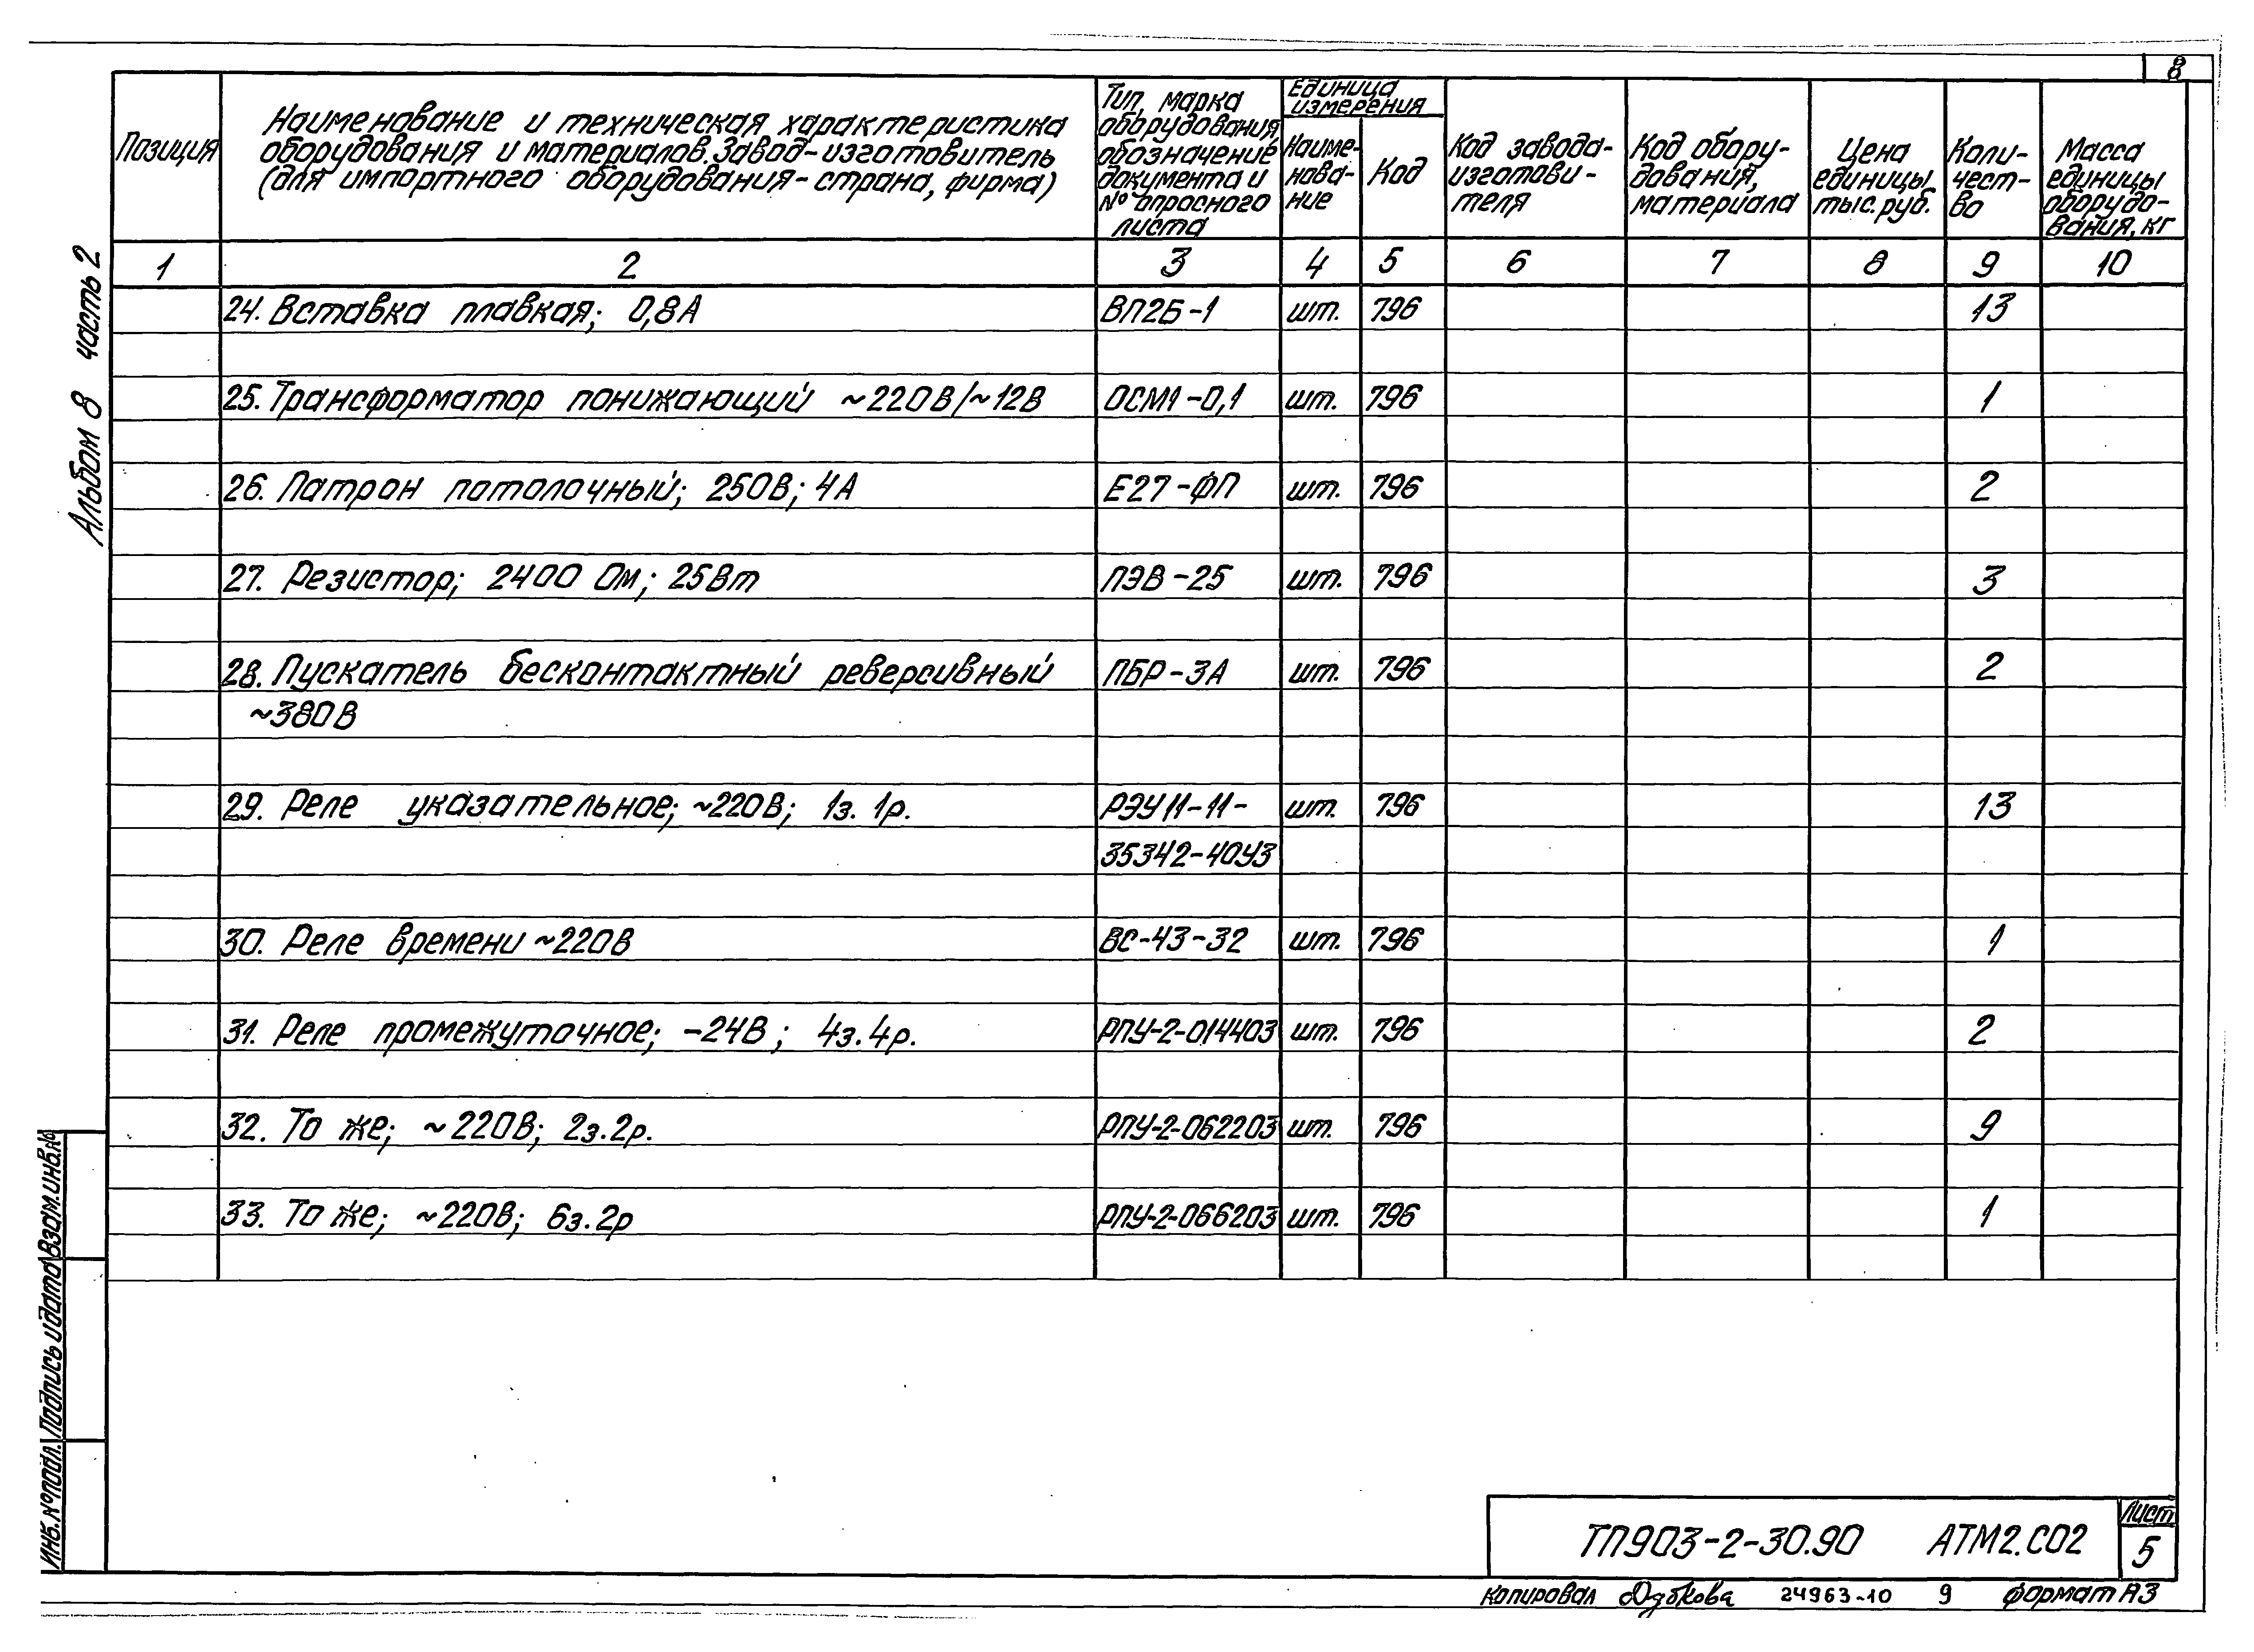 8
Альбом 8 часть 2
Позиция
Наименование и техническая характеристика
оборудования и материалов. Завод-изготовитель
(для импортного оборудования-страна, фирма)
Тип, марка
оборудования
обозначение
документа и
№ опросного
листа
Единица
измерения
Наиме-
нова-
ние
Код
Код завода-
изготови-
теля
Код обору-
дования,
материала
Цена
единицы
тыс. руб.
Коли-
чест-
во
Масса
единицы
оборудо-
вания, кг
1 2 3 4 5 6 7 8 9 10
24. Вставка плавкая; 0,8А ВП2Б-1 шт. 796 13
25. Трансформатор понижающий ~220В/~12В ОСМ1-0,1 шт. 796 1
26. Патрон потолочный; 250В; 4А Е27-ФП шт. 796 2
27. Резистор; 2400 Ом; 25Вт ПЭВ-25 шт. 796 3
28. Пускатель бесконтактный реверсивный ПБР-3А шт. 796 2
~380В
29. Реле указательное; ~220В; 1з. 1р. РЭУ11-11- шт. 796 13
35342-40У3
30. Реле времени ~220В ВС-43-32 шт. 796 1
31. Реле промежуточное; -24В; 4з. 4р. РПУ-2-014403 шт. 796 2
32. То же; ~220В; 2з. 2р. РПУ-2-062203 шт. 796 9
33. То же; ~220В; 6з. 2р РПУ-2-066203 шт. 796 1
Взам. инв. №
Подпись и дата
Инв. № подл.
ТП903-2-30.90 АТМ2.СО2
Лист
5
Копировал Дубкова 24963-10 9 формат А3